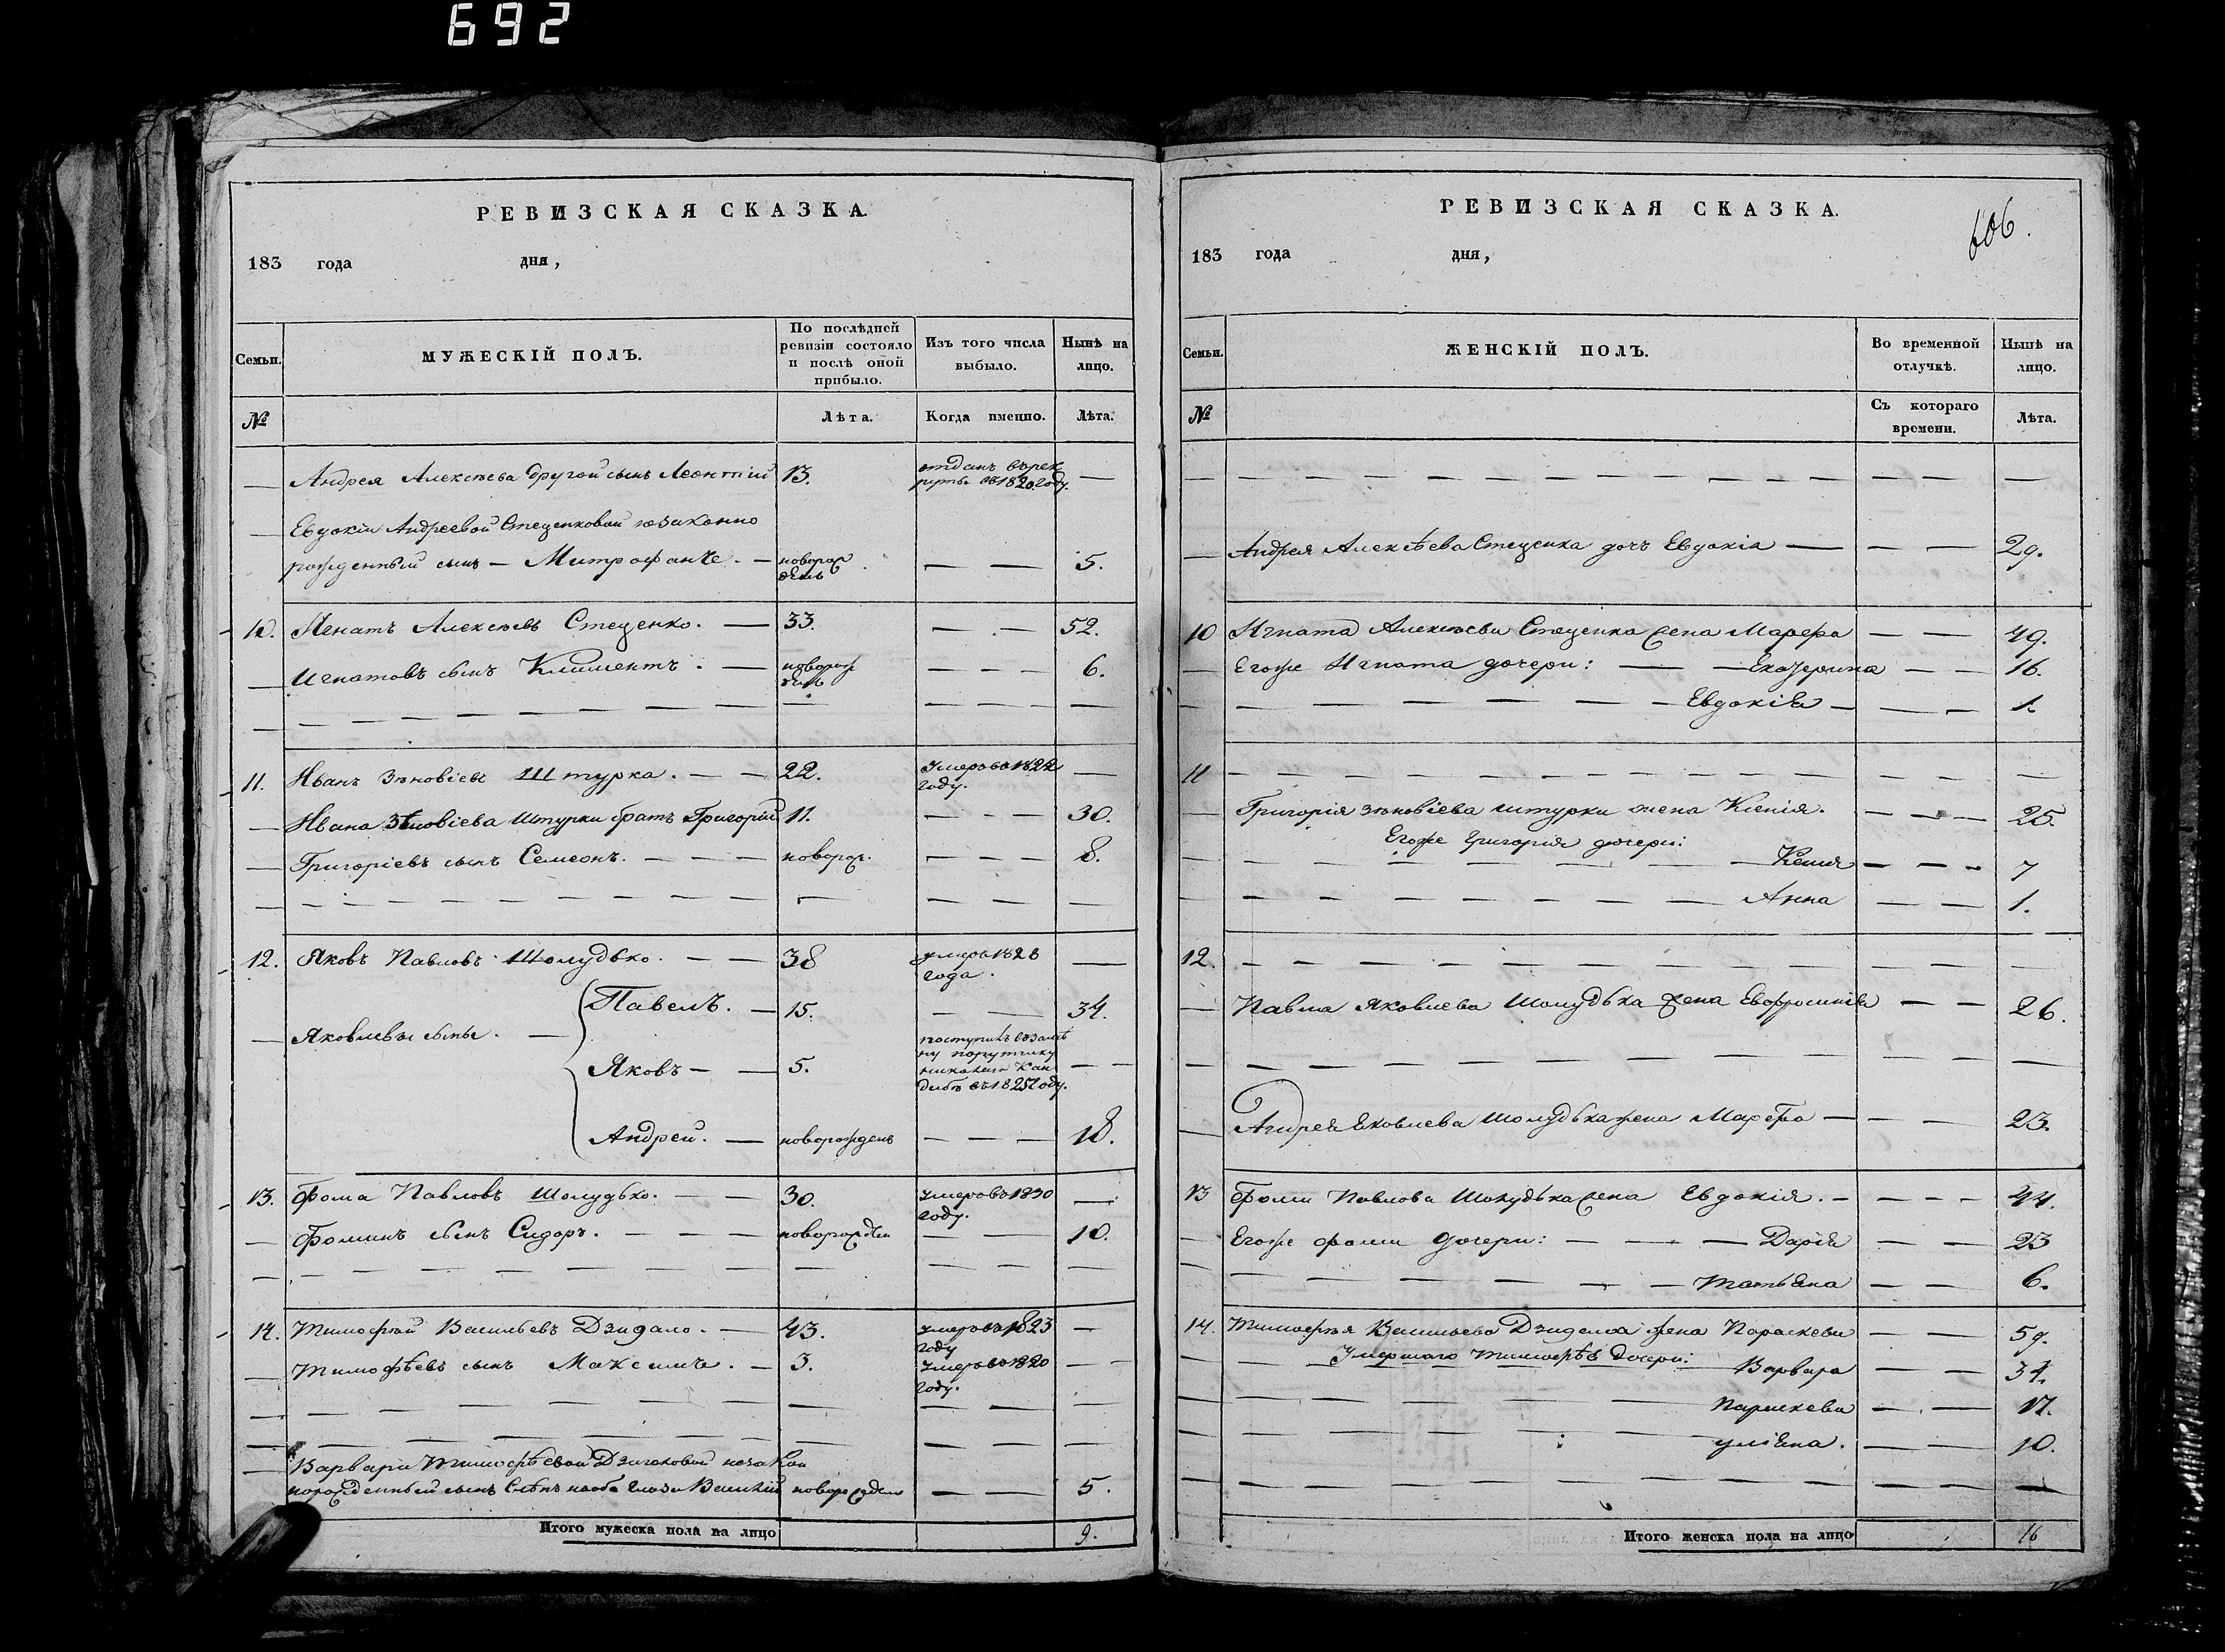 692
РЕВИЗСКАЯ СКАЗКА.
183 года дня,
Семьи.
МУЖЕСКІЙ ПОЛЪ.
По послѣдней ревизіи состояло и послѣ оной прибыло.
Изъ того числа выбыло.
Нынѣ на лицо.
№
Лѣта.
Когда именно.
Лѣта.
— Андрея Алексѣева другой сынъ Леонтій 13. отданъ въ рек
руты въ 1820 году. —
Евдокіи Андреевой Стеценковой незаконно
рожденный сынъ — Митрофанъ. — новорож
денъ — — 5.
10. Игнатъ Алексѣевъ Стеценко. — 33. — — 52.
— Игнатовъ сынъ Климентъ. — новорож
денъ — — — 6.
11. Иванъ Зѣновіевъ Штурка. — — 22. Умеръ въ 1822
году. —
— Ивана Зѣновіева Штурки братъ Григорій 11. — — — 30.
— Григоріевъ сынъ Семеонъ. — — — новорож. — — — 8.
12. Яковъ Павловъ Шолудько. — — 38 умеръ 1828
года. —
Павелъ. — 15. — — 34.
— Яковлевы сыны. —
поступилъ
Яковъ — — 5.
въ 1825 году. — —
Андрей. — новорожденъ — — — 18.
13. Фома Павловъ Шолудько. — — 30. Умеръ въ 1830
году. —
— Фоминъ сынъ Сидоръ. — — — новорожден — — 10.
14. Тимофѣй Васильевъ Дзигало. — 43. Умеръ въ 1823
году —
— Тимофѣевъ сынъ Максимъ. — 3. Умеръ въ 1820
году. — —
— Варвары Тимофѣевой Дзигаловой незакон
норожденный сынъ Василій новорожден — — 5.
Итого мужеска пола на лицо 9.
РЕВИЗСКАЯ СКАЗКА.
606.
183 года дня,
Семьи.
ЖЕНСКІЙ ПОЛЪ.
Во временной отлучкѣ.
Нынѣ на лицо.
№
Съ котораго времени.
Лѣта.
— Андрея Алексѣева Стеценка дочь Евдокія — — — 29.
10 Игната Алексѣева Стеценка жена Марфа — — 49.
— Егоже Игната дочери: — — Екатерина — — 16.
Евдокія — — — 1.
11
— Григорія Зѣновіева Штурки жена Ксенія. — — — 25.
Егоже Григорія дочери:
Ксенія — — — 7
Анна — — 1.
12.
— Павла Яковлева Шолудька жена Евфросинія — — 26.
— Андрея Яковлева Шолудька жена Марфа — — — 23.
13 Фомы Павлова Шолудька жена Евдокія. — — — — 44.
— Егоже Фомы дочери: — — — Дарія — — 23
Татьяна — — 6.
14. Тимофѣя Васильева Дзигала жена Параскева — — 59.
Умершаго Тимофѣя дочери:
Варвара — — 34.
Параскева — — 17.
Уліяна. — — 10.
Итого женска пола на лицо 16